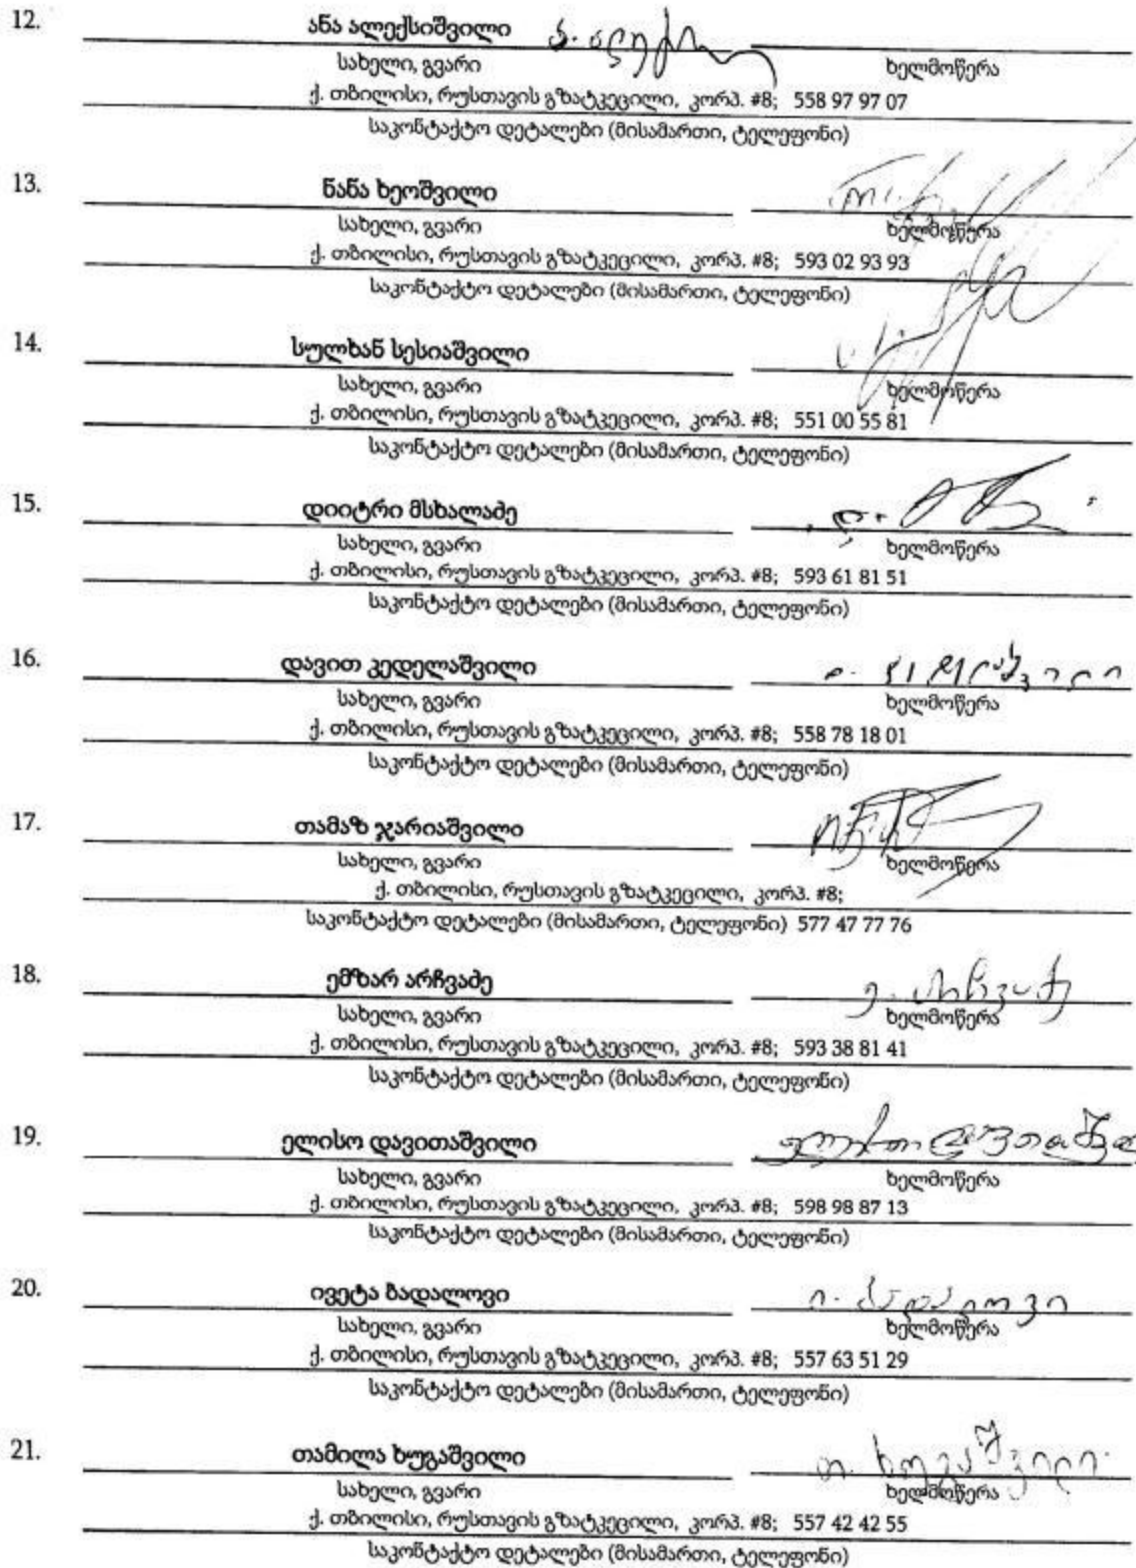 12. ანა ალექსიშვილი ა. ალექსი
სახელი, გვარი ხელმოწერა
ქ. თბილისი, რუსთავის გზატკეცილი, კორპ. #8; 558 97 97 07
საკონტაქტო დეტალები (მისამართი, ტელეფონი)
13. ნანა ხეოშვილი
სახელი, გვარი ხელმოწერა
ქ. თბილისი, რუსთავის გზატკეცილი, კორპ. #8; 593 02 93 93
საკონტაქტო დეტალები (მისამართი, ტელეფონი)
14. სულხან სესიაშვილი
სახელი, გვარი ხელმოწერა
ქ. თბილისი, რუსთავის გზატკეცილი, კორპ. #8; 551 00 55 81
საკონტაქტო დეტალები (მისამართი, ტელეფონი)
15. დიიტრი მსხალაძე
სახელი, გვარი ხელმოწერა
ქ. თბილისი, რუსთავის გზატკეცილი, კორპ. #8; 593 61 81 51
საკონტაქტო დეტალები (მისამართი, ტელეფონი)
16. დავით კედელაშვილი დ. კედელაშვილი
სახელი, გვარი ხელმოწერა
ქ. თბილისი, რუსთავის გზატკეცილი, კორპ. #8; 558 78 18 01
საკონტაქტო დეტალები (მისამართი, ტელეფონი)
17. თამაზ ჯარიაშვილი
სახელი, გვარი ხელმოწერა
ქ. თბილისი, რუსთავის გზატკეცილი, კორპ. #8;
საკონტაქტო დეტალები (მისამართი, ტელეფონი) 577 47 77 76
18. ემზარ არჩვაძე ე. არჩვაძე
სახელი, გვარი ხელმოწერა
ქ. თბილისი, რუსთავის გზატკეცილი, კორპ. #8; 593 38 81 41
საკონტაქტო დეტალები (მისამართი, ტელეფონი)
19. ელისო დავითაშვილი ელისო
სახელი, გვარი ხელმოწერა
ქ. თბილისი, რუსთავის გზატკეცილი, კორპ. #8; 598 98 87 13
საკონტაქტო დეტალები (მისამართი, ტელეფონი)
20. ივეტა ბადალოვი ი. ბადალოვი
სახელი, გვარი ხელმოწერა
ქ. თბილისი, რუსთავის გზატკეცილი, კორპ. #8; 557 63 51 29
საკონტაქტო დეტალები (მისამართი, ტელეფონი)
21. თამილა ხუგაშვილი თ. ხუგაშვილი
სახელი, გვარი ხელმოწერა
ქ. თბილისი, რუსთავის გზატკეცილი, კორპ. #8; 557 42 42 55
საკონტაქტო დეტალები (მისამართი, ტელეფონი)